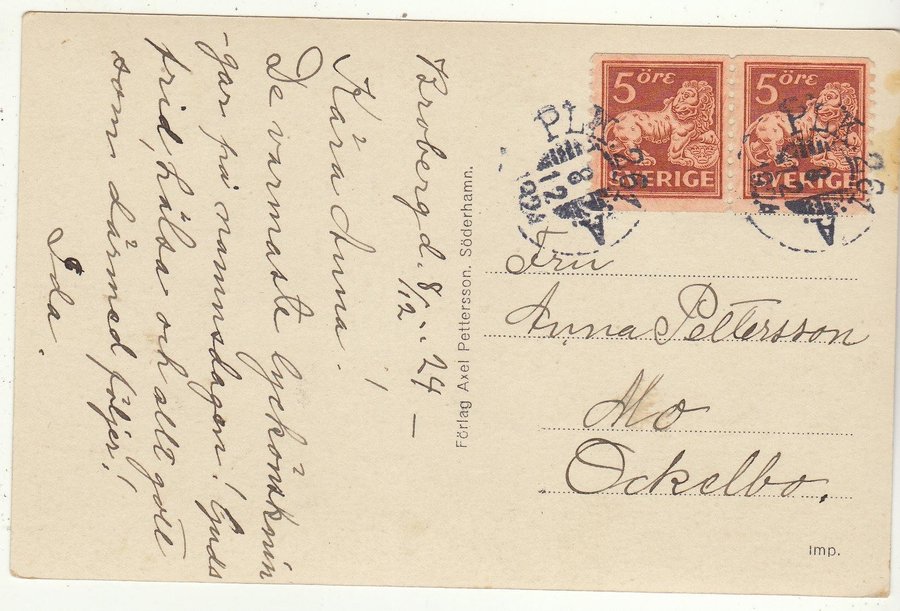 Broberg d. 8/12 .. 24 —
Kära Anna!
De varmaste lyckönsknin
-gar på namnsdagen! Guds
frid, hälsa och allt gott
som därmed följer!
Ida.
Förlag Axel Pettersson. Söderhamn.
5 ÖRE
SVERIGE
5 ÖRE
SVERIGE
PLK 263 A
8 12
Fru
Anna Pettersson
Mo
Ockelbo.
Imp.